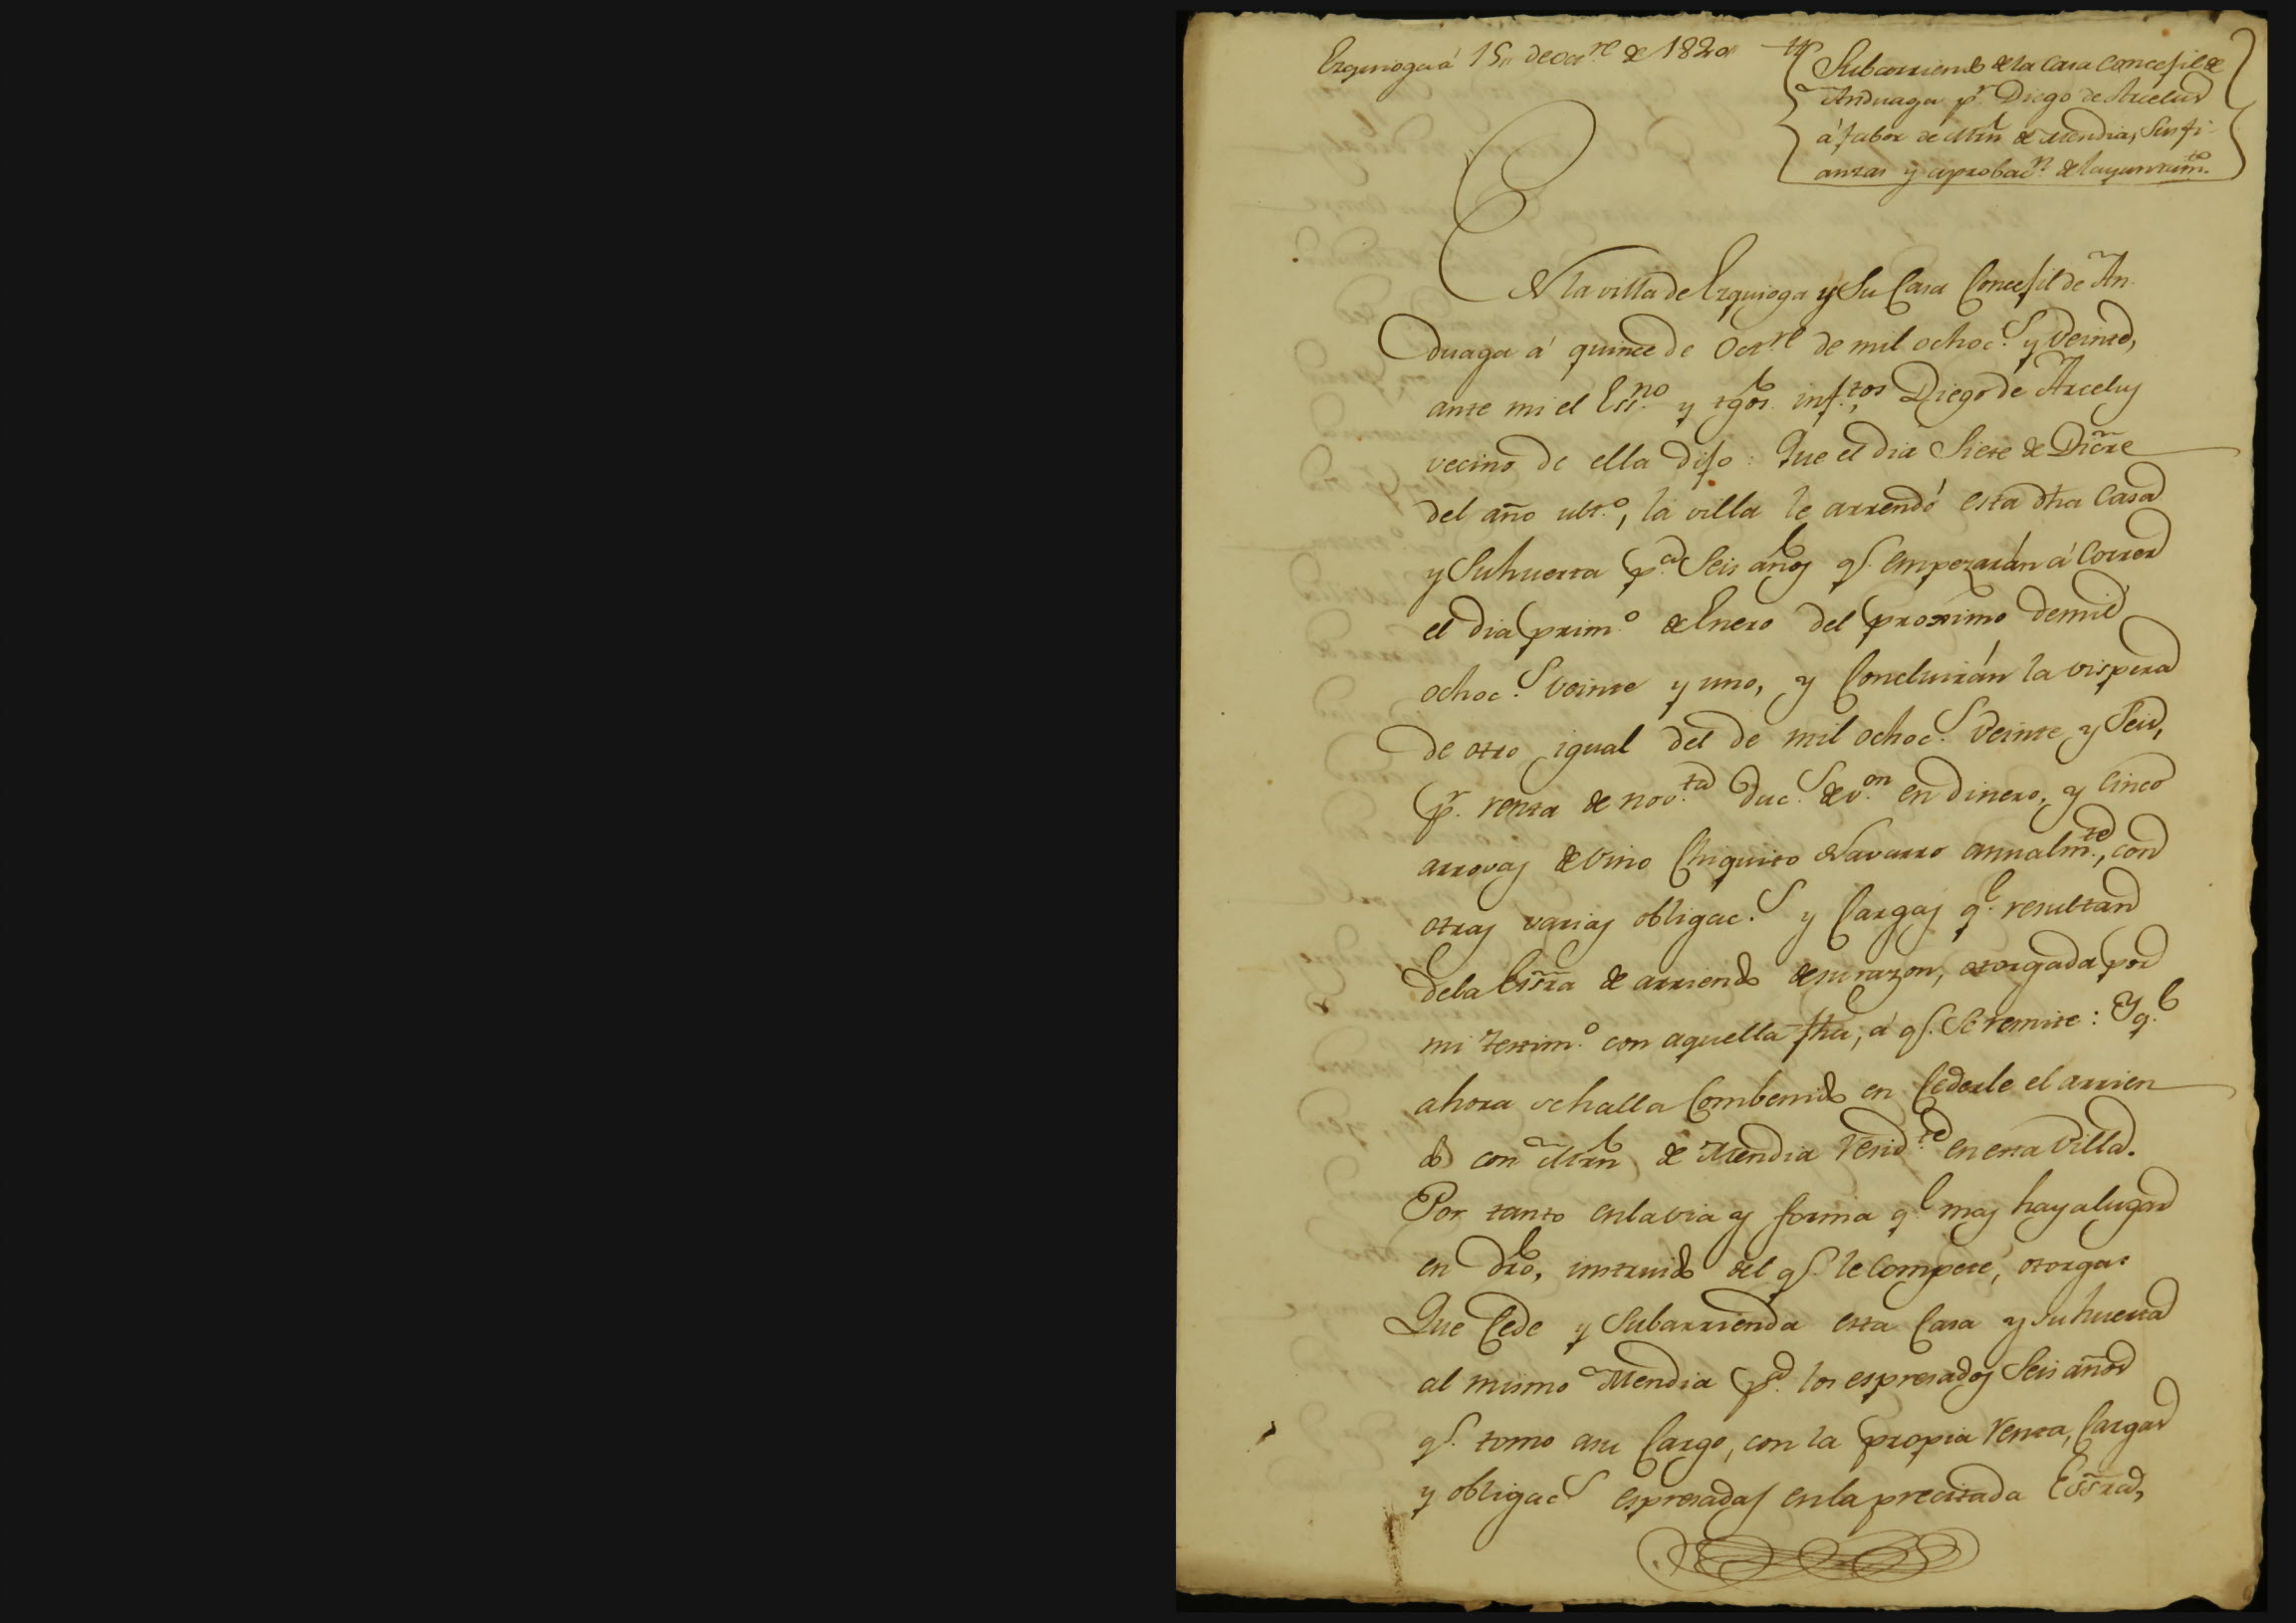 Ezquioga á 15,, de oct.re de 1820
Subarriendo de la Casa Concejil de
Anduaga p.r Diego de Arcelus
á fabor de Mrn de Mendia, sus fi-
anzas y aprobac.n de layuntam.to
EN la villa de Ezquioga y Su Casa Concejil de An-
duaga á quince de Oct.re de mil ochoc.s y veinte,
ante mi el Ess.no y tgos. inf.tos, Diego de Arcelus
vecino de ella dijo: Que el dia Siete de Dicre
del año ult.o, la villa le arrendó esta dha Casa
y Su huerta p.a Seis años q.e empezarán á Correr
el dia prim.o de Enero del proximo de mil
ochoc.s veinte y uno, y Concluirán la vispera
de otro igual del de mil ochoc.s veinte y Seis,
p.r renta de nov.ta duc.s de v.on en dinero, y Cinco
arrovas de vino Chiquito Navarro anualm.te, con
otras varias obligac.s y Cargas q.e resultan
de la Essra de arriendo de su razon, otorgada por
mi testim.o con aquella fha, á q.e Se remite: Y q.e
ahora se halla Combenido en Cederle el arrien
do con Mrn de Mendia resid.te en esta Villa.
Por tanto en la via y forma q.e mas haya lugar
en dro, instruido del q.e le Compete, otorga:
Que Cede y Subarrienda esta Casa y su huerta
al mismo Mendia p.a los espresados Seis años
q.e tomo a su Cargo, con la propia renta, Cargas
y obligac.s espresadas en la precitada Essra,